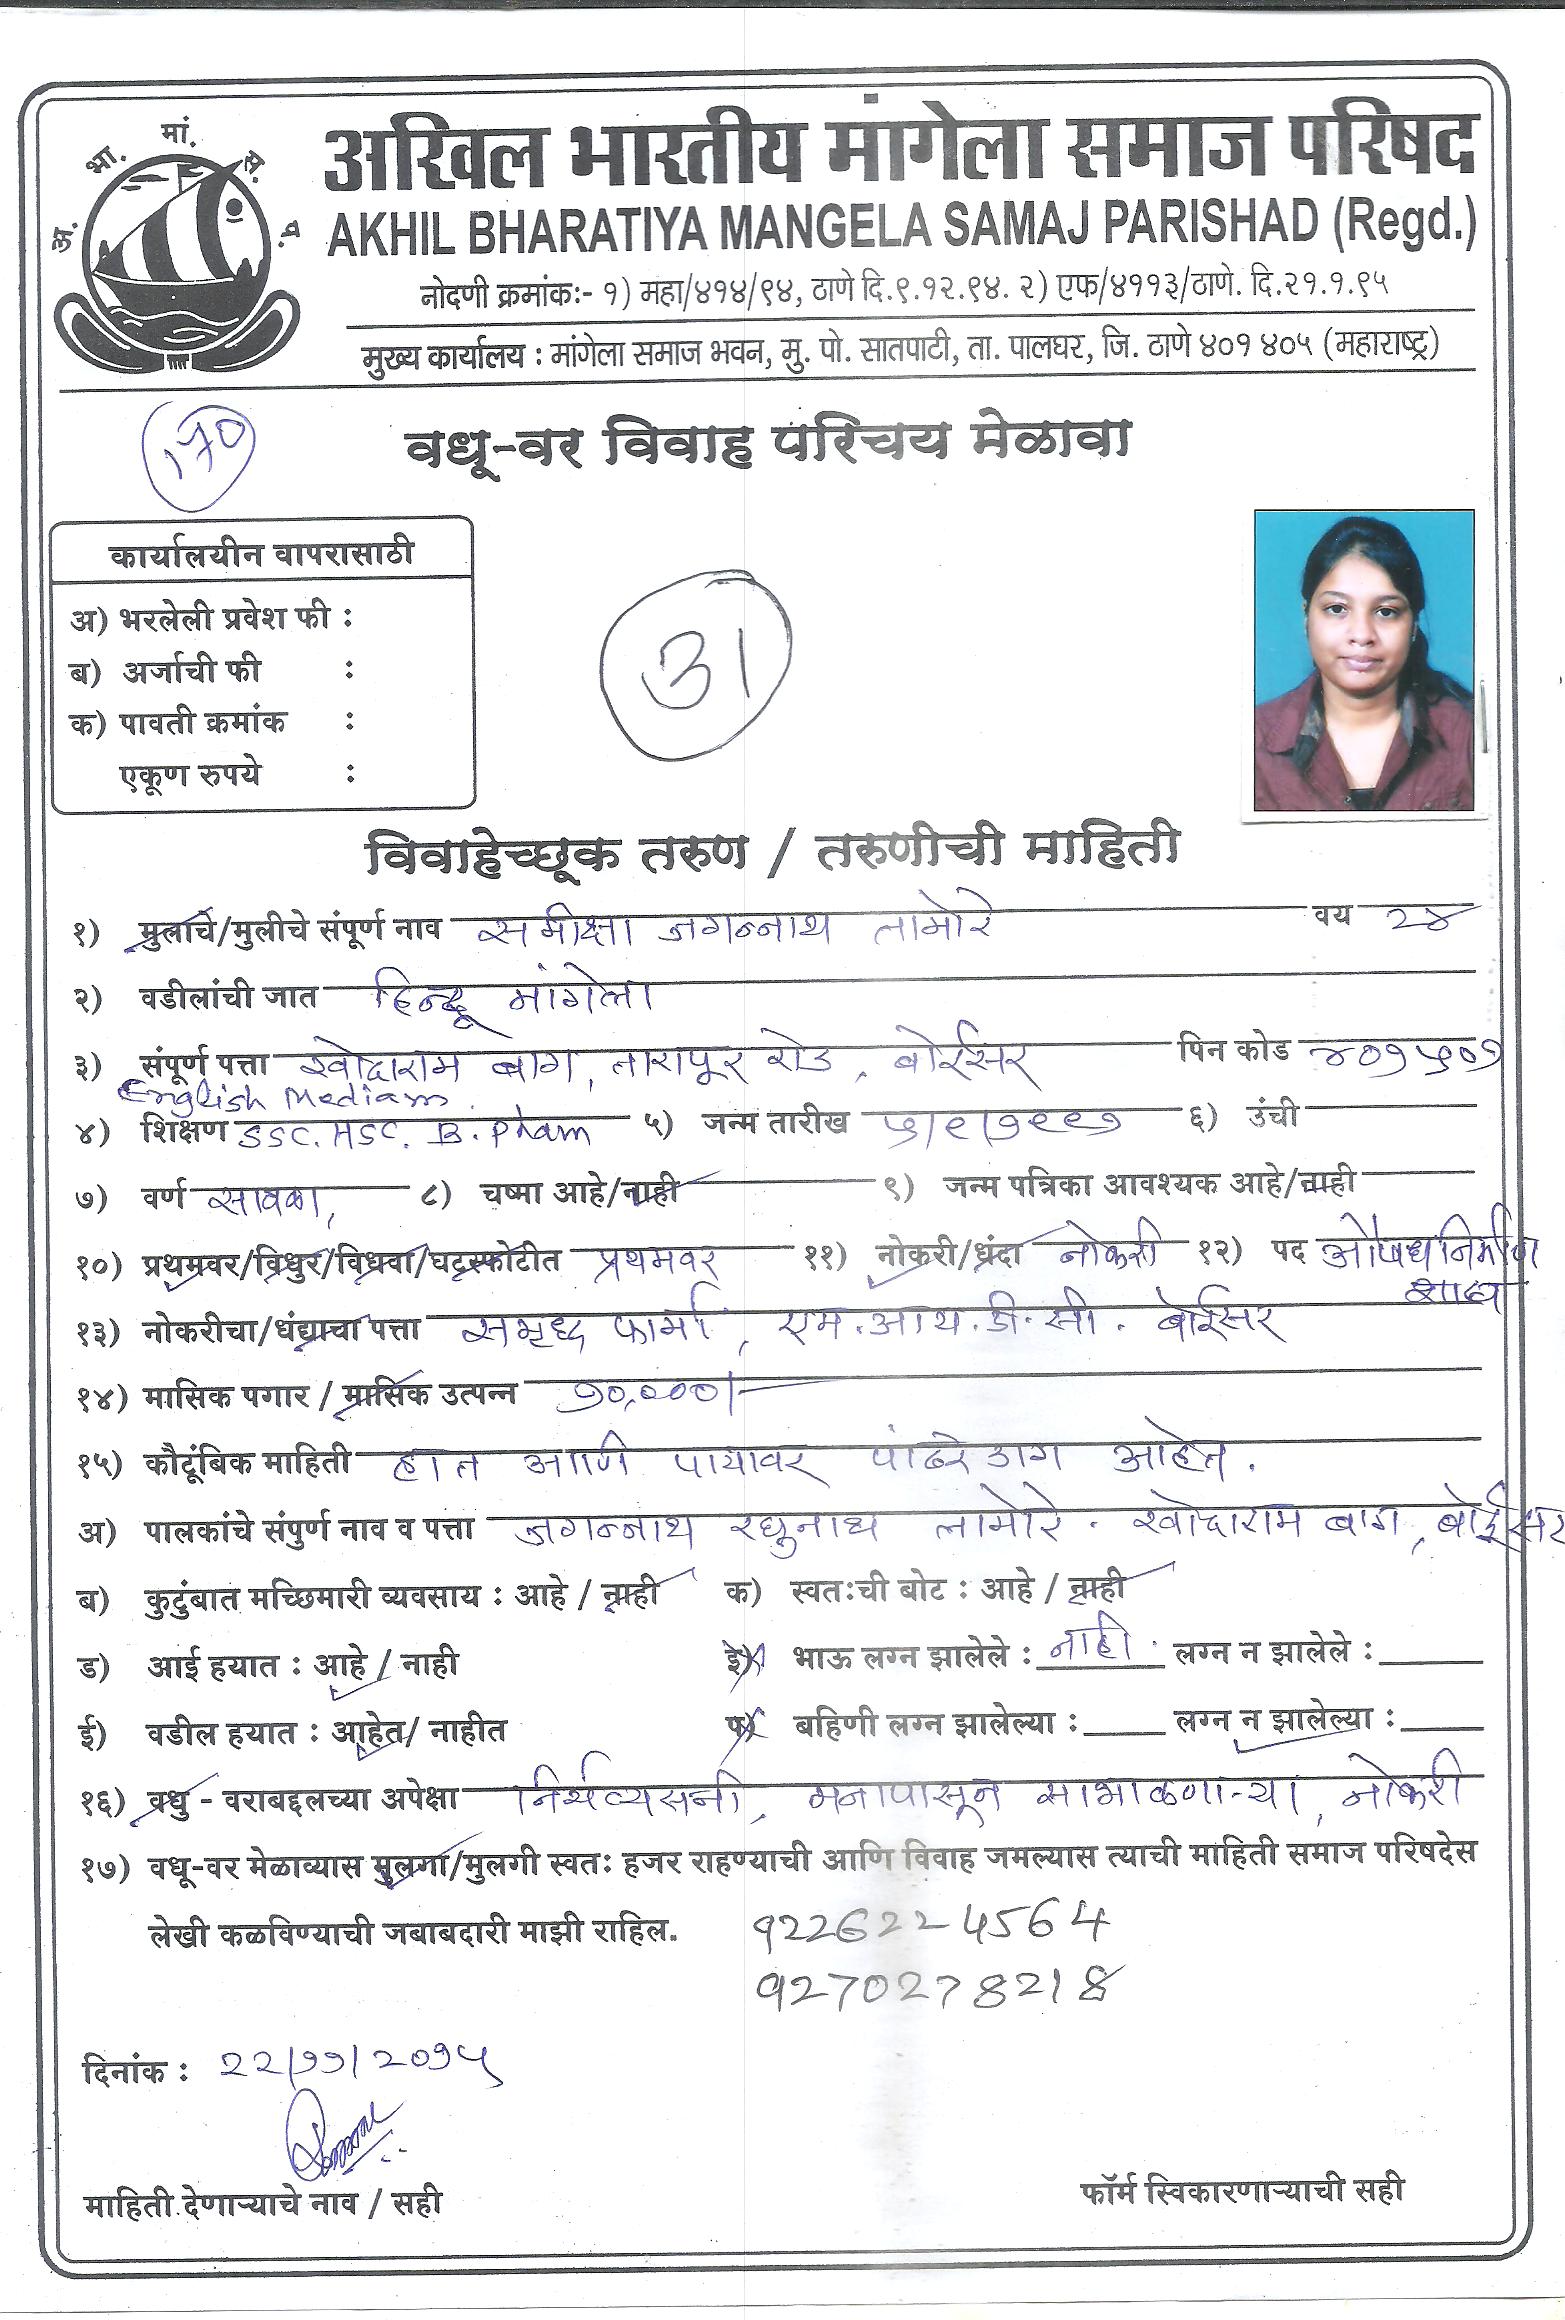 अ. भा. मां. स. प.
अखिल भारतीय मांगेला समाज परिषद
AKHIL BHARATIYA MANGELA SAMAJ PARISHAD (Regd.)
नोदणी क्रमांकः- १) महा/४१४/९४, ठाणे दि.९.१२.९४. २) एफ/४११३/ठाणे. दि.२१.१.९५
मुख्य कार्यालय : मांगेला समाज भवन, मु. पो. सातपाटी, ता. पालघर, जि. ठाणे ४०१ ४०५ (महाराष्ट्र)
170
वधू-वर विवाह परिचय मेळावा
कार्यालयीन वापरासाठी
अ) भरलेली प्रवेश फी :
ब) अर्जाची फी :
क) पावती क्रमांक :
एकूण रुपये :
31
विवाहेच्छूक तरुण / तरुणीची माहिती
१) मुलाचे/मुलीचे संपूर्ण नाव समीक्षा जगन्नाथ तामोरे वय २४
२) वडीलांची जात हिन्दू मांगेला
३) संपूर्ण पत्ता खोदाराम बाग, तारापूर रोड, बोईसर पिन कोड ४०१५०१
English Mediam.
४) शिक्षण SSC. HSC. B. Pham ५) जन्म तारीख ५/९/१९९१ ६) उंची
७) वर्ण सावळा, ८) चष्मा आहे/नाही ९) जन्म पत्रिका आवश्यक आहे/नाही
१०) प्रथमवर/विधुर/विधवा/घटस्फोटीत प्रथमवर ११) नोकरी/धंदा नोकरी १२) पद औषधनिर्माण
शास्त्र
१३) नोकरीचा/धंद्याचा पत्ता समृध्द फार्मा, एम.आय.डी.सी. बोईसर
१४) मासिक पगार / मासिक उत्पन्न १०,०००/-
१५) कौटूंबिक माहिती हात आणि पायावर पांढरे डाग आहेत.
अ) पालकांचे संपुर्ण नाव व पत्ता जगन्नाथ रघुनाथ तामोरे. खोदाराम बाग, बोईसर
ब) कुटुंबात मच्छिमारी व्यवसाय : आहे / नाही क) स्वतःची बोट : आहे / नाही
ड) आई हयात : आहे / नाही इ) भाऊ लग्न झालेले : नाही. लग्न न झालेले :
ई) वडील हयात : आहेत/ नाहीत फ) बहिणी लग्न झालेल्या : लग्न न झालेल्या :
१६) वधु - वराबद्दलच्या अपेक्षा निर्यव्यसनी, मनापासून साभाळणाऱ्या, नोकरी
१७) वधू-वर मेळाव्यास मुलगा/मुलगी स्वतः हजर राहण्याची आणि विवाह जमल्यास त्याची माहिती समाज परिषदेस
लेखी कळविण्याची जबाबदारी माझी राहिल. 9226224564
9270278218
दिनांक : २२/११/२०१५
माहिती देणाऱ्याचे नाव / सही फॉर्म स्विकारणाऱ्याची सही